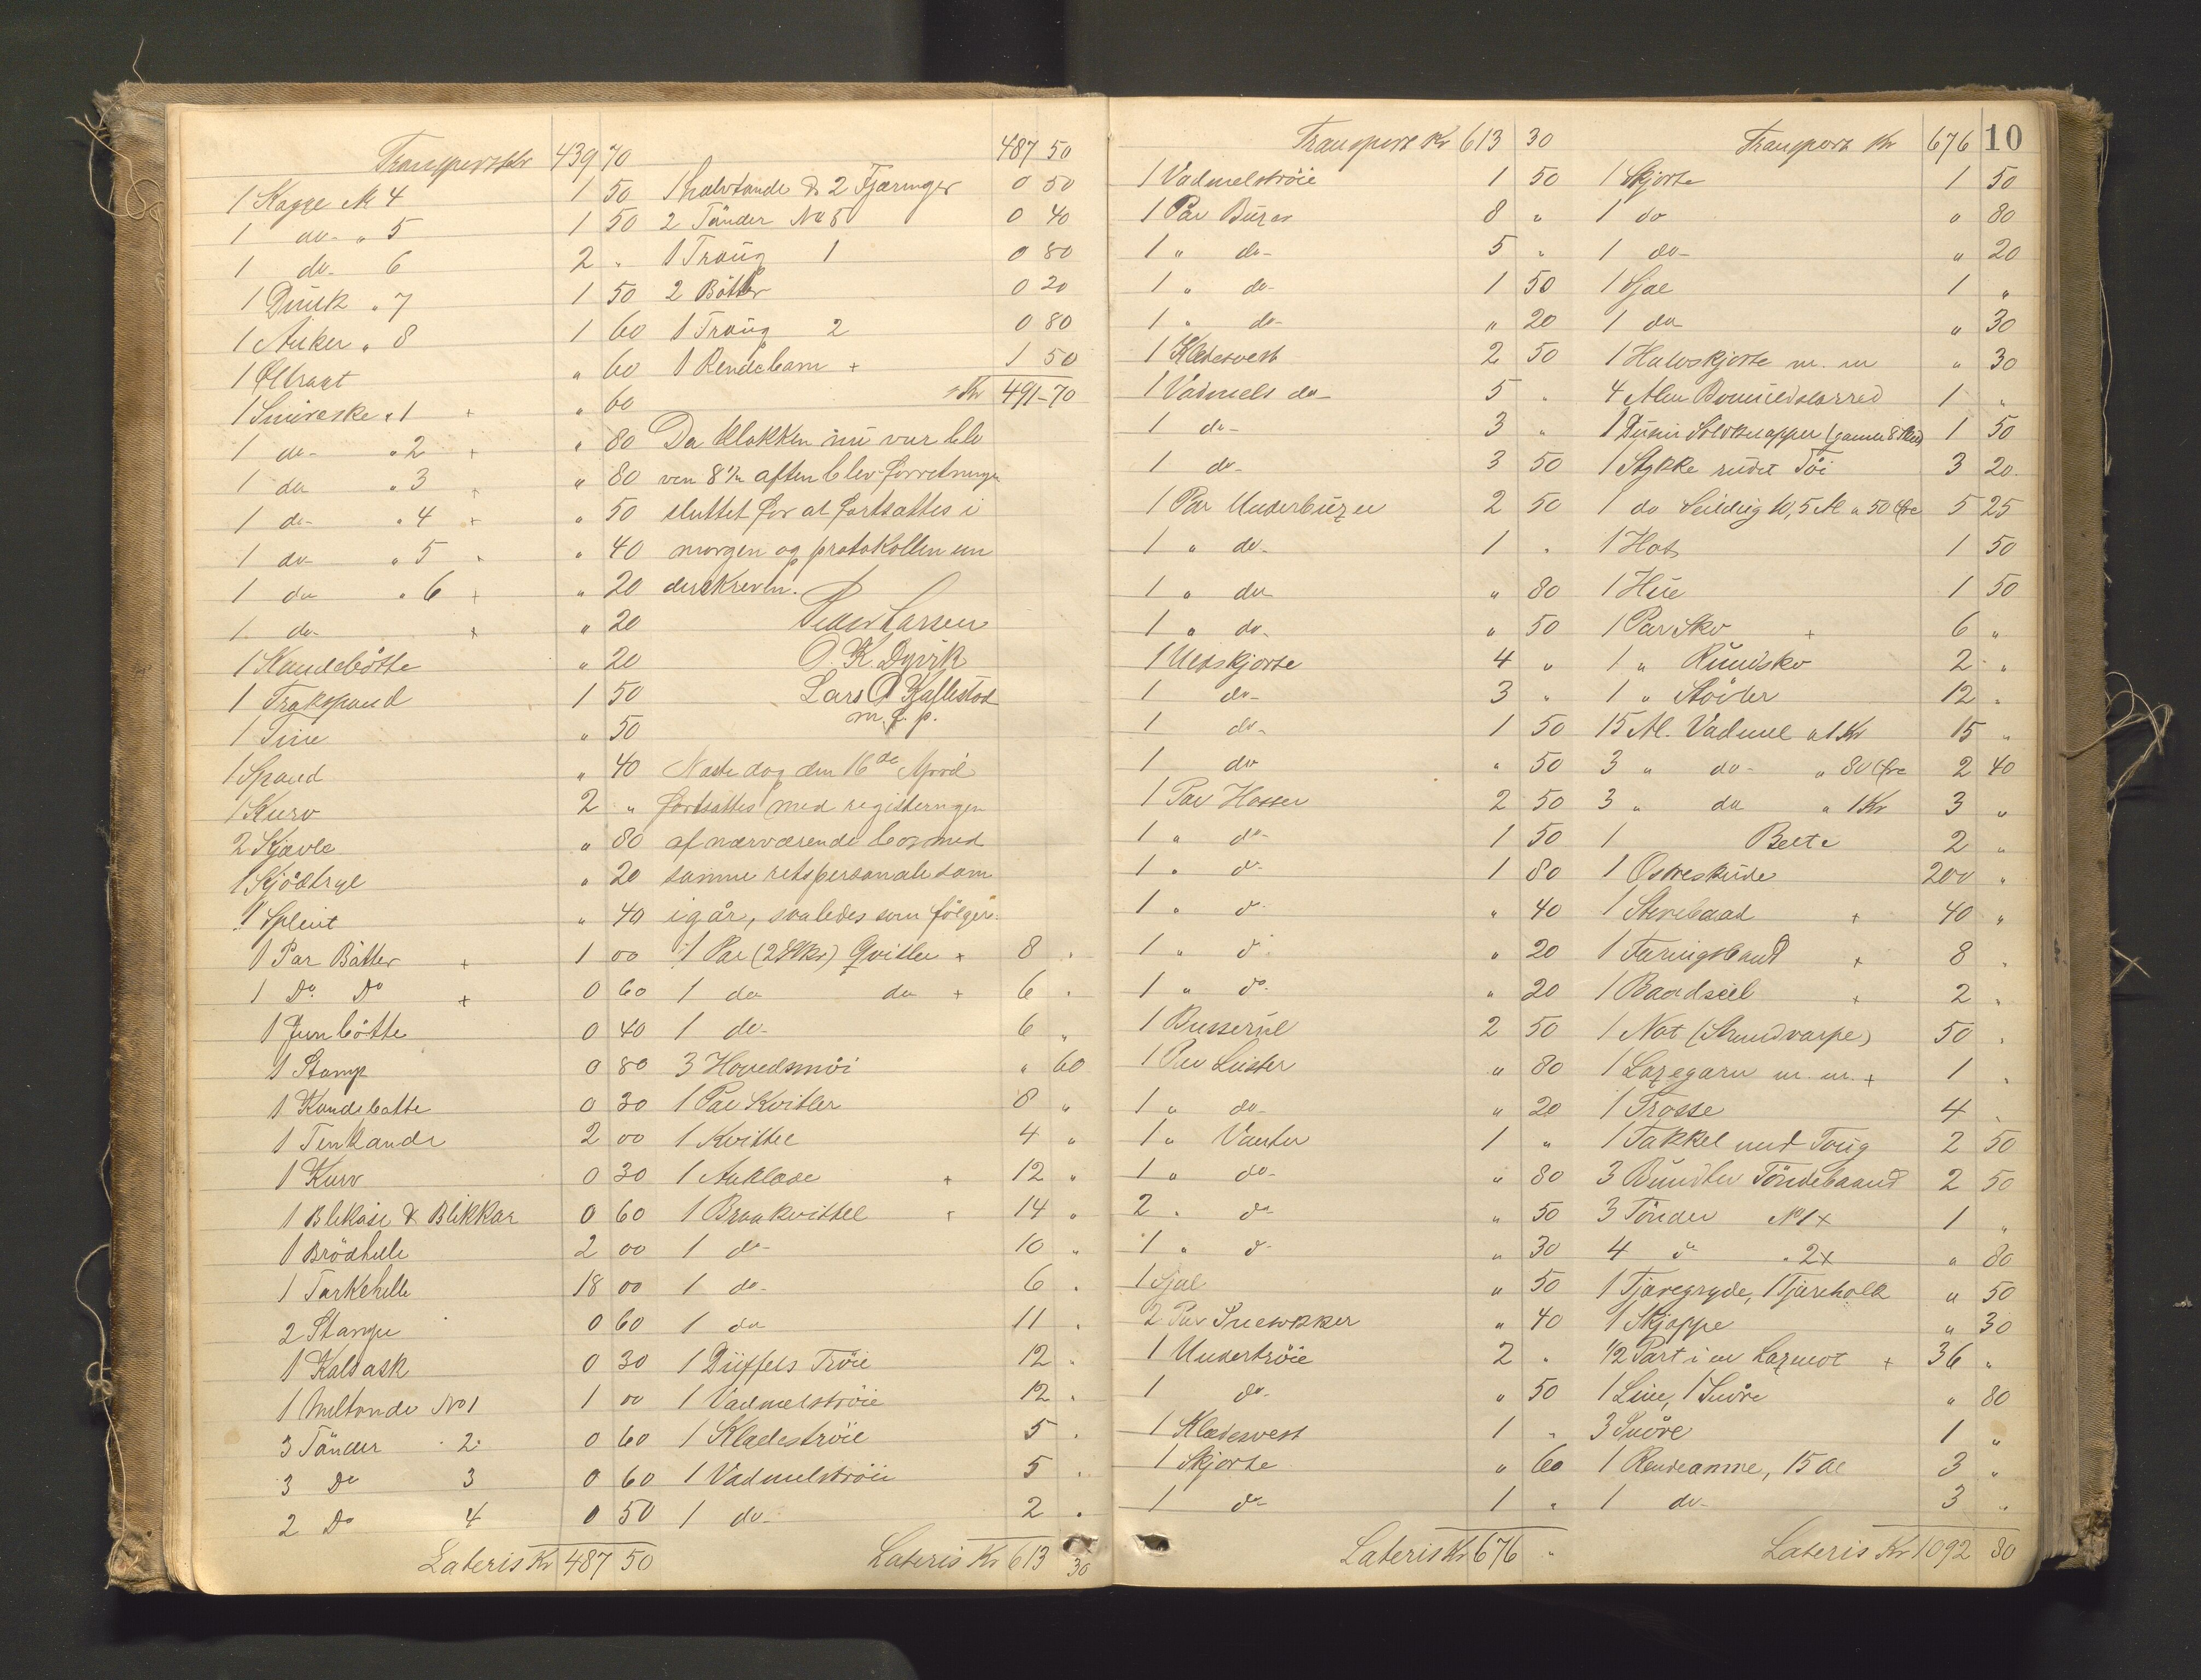 Transport Kr 439 70
1 Kagge № 4 1 50
1 do- " 5 1 50
1 do- 6 2 "
1 Dunk " 7 1 50
1 Anker " 8 1 60
1 Øltragt " 60
1 Smöræske " 1 + " 60
1 do- " 2 + " 80
1 do " 3 + " 80
1 do- " 4 + " 50
1 do- " 5 " 40
1 do " 6 + " 20
1 do- + " 20
1 Kandebötte " 20
1 Trakspand 1 50
1 Tine " 50
1 Spand " 40
1 Kurv 2 "
2 Kjævle " 80
1 Kjödtryl " 20
1 Splint " 40
1 Par Bötter + 1 00
1 Do Do + 0 60
1 Junbötte 0 40
1 Stamp 0 80
1 Kandebötte 0 30
1 Tenkande 2 00
1 Kurv 0 30
1 Bliköse & Blikkar 0 60
1 Brödhelle 2 00
1 Tørkehelle 18 00
2 Stampe 0 60
1 Kalvask 0 30
1 Meltönde No 1 1 00
3 Tönder " 2 0 60
3 Do 3 0 60
2 Do 4 0 50
Lateris Kr 487 50
487 50
1 halvtönde & 2 Fjæringer 0 50
2 Tönder No 5 0 40
1 Traug 1 0 80
2 Bötter 0 20
1 Traug 2 0 80
1 Rendebom + 1 50
Kr 491-70
Da klokken nu var ble
ven 8 1/2 aften blev forretningen
sluttet for at fortsættes i
morgen og protokollen un
derskreven.
Peder Larsen
O. K. Dyvik
Lars O Kallestad
m. f. p.
Næste dag den 16de April
fortsattes med registeringen
af nærværende bo med
samme retspersonale som
igår, saaledes som følger:
1 Par (2 Stkr) Qvitler + 8 "
1 do do + 6 "
1 do- 6 "
3 Hovedsmöi " 60
1 Par Kvitler 8 "
1 Kvittel 4 "
1 Aaklæde + 12 "
1 Braakvittel + 14 "
1 do- 10 "
1 do- 6 "
1 do 11 "
1 Düffels Tröie 12 "
1 Vadmelströie 12 "
1 Klædeströie 5 "
1 Vadmelströie 5 "
1 do- 2 "
Lateris Kr 613 30
Transport Kr 613 30
1 Vadmelströie 1 50
1 Par Buxer 8 "
1 " do- 5 "
1 " do- 1 50
1 " do- " 20
1 Klædesvest 2 50
1 Vadmels do- 5 "
1 do- 3 "
1 do- 3 50
1 Par Underbuxer 2 50
1 " do- 1 "
1 " do " 80
1 " do- " 50
1 Uldskjorte 4 "
1 do- 3 "
1 do- 1 50
1 do " 50
1 Par Hoser 2 50
1 " do- 1 50
1 " do 1 80
1 " do " 40
1 " do " 20
1 " do " 20
1 Busserul 2 50
1 Par Luster " 80
1 " do- " 20
1 " Vanter 1 "
1 " do- " 80
2 " do " 50
1 " do " 30
1 Sjal " 50
2 Par Snesokker " 40
1 Undertröie 2 "
1 do- " 50
1 Klædesvest 1 "
1 Skjorte " 60
1 do 1 "
Lateris Kr 676 "
Transport Kr 676 10
1 Skjorte 1 50
1 do " 80
1 do- " 20
1 Sjal 1 "
1 do " 30
1 Halvskjorte m. m " 30
4 Alen Bomuldslærred 1 "
1 Dusin Sölvknapper 1 50
1 Stykke rudet Töi 3 20
1 do Seildug 10,5 Al a 50 Öre 5 25
1 Hat 1 50
1 Hue 1 50
1 Par Sko + 6 "
1 " Rundsko 2 "
1 " Stövler 12 "
15 Al. Vadmel a 1 Kr 15 "
3 " do- " 80 Öre 2 40
3 " do " 1 Kr 3 "
1 Belte 2 "
1 Osreskude 200 "
1 Storebaad + 40 "
1 Færingsbaad + 8 "
1 Baadseil + 2 "
1 Not (Strandvarpe) 50 "
1 Laxegarn m. m. + 1 "
1 Trosse 4 "
1 Takkel med Toug 2 50
3 Bundter Töndebaand 2 50
3 Tönder № 1 + 1 "
4 do " 2 + " 80
1 Tjæregryde, 1 Tjæreholk " 50
1 Skjæppe " 30
1/2 Part i en Laxenot + 36 "
1 Line, 1 Snöre " 80
3 Snöre 1 "
1 Rendeanne, 15 al 3 "
1 do- 3 "
Lateris Kr 1092 80